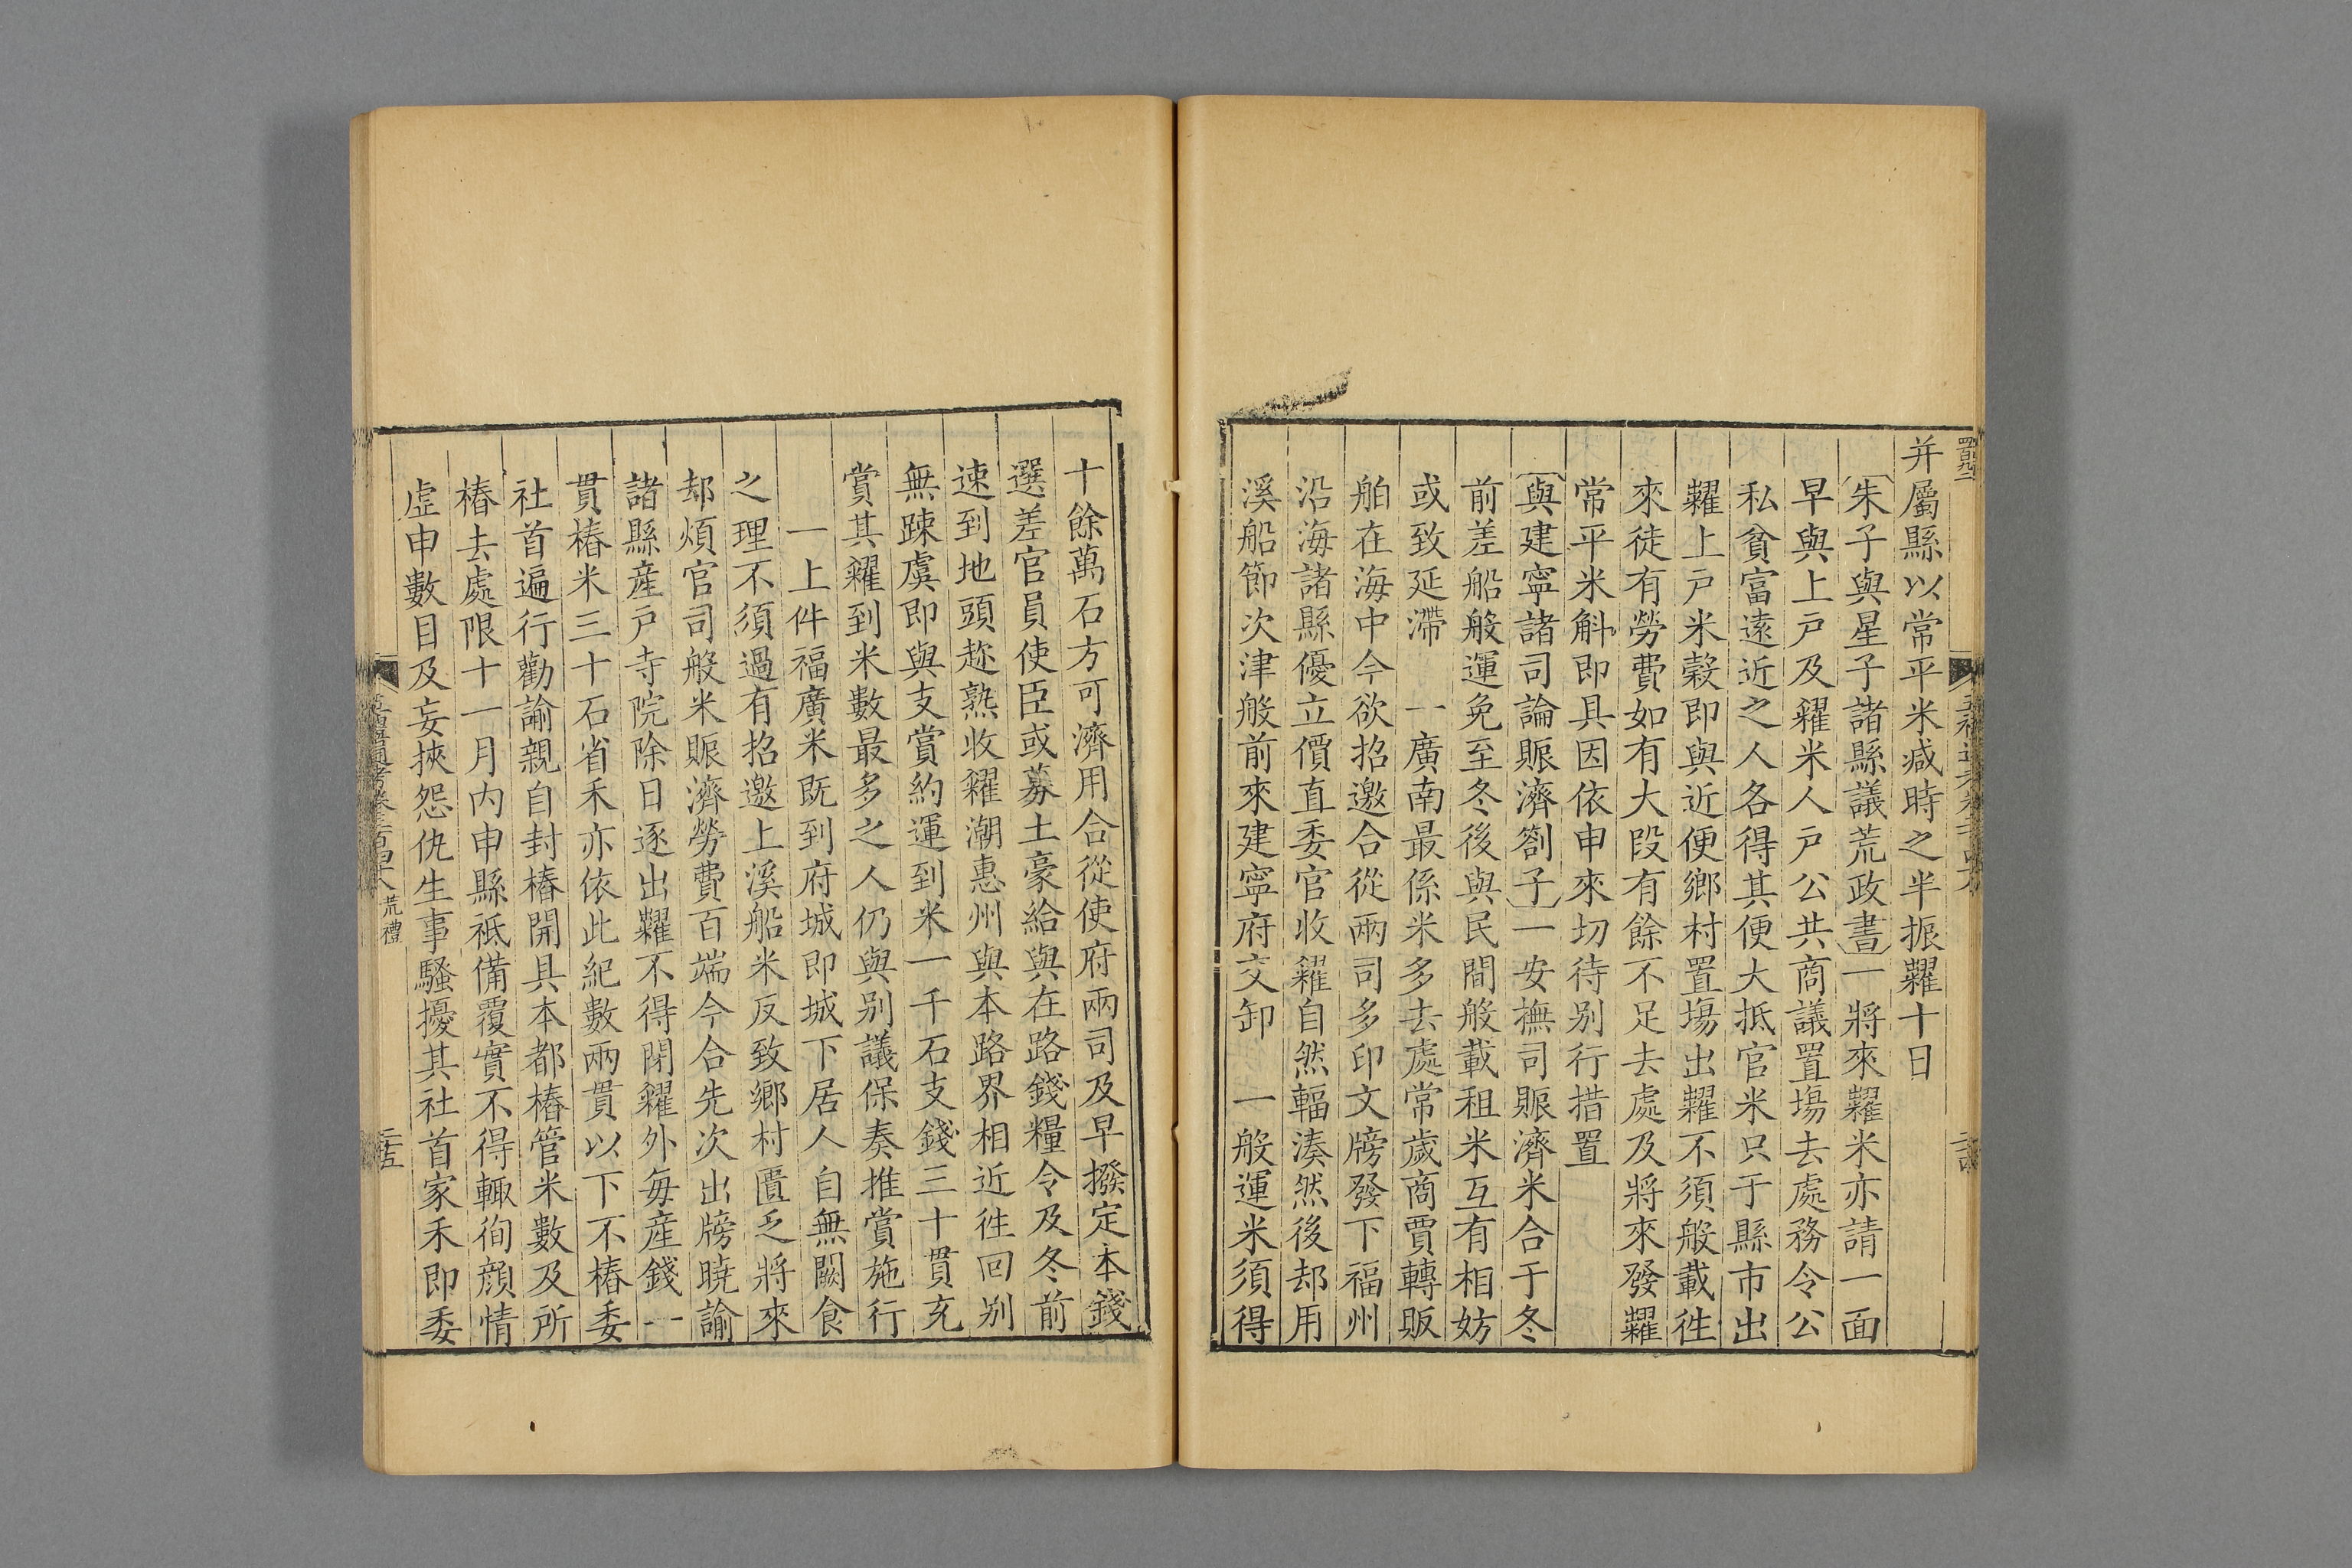 并屬縣以常平米減時之半振糶十日
朱子與星子諸縣議荒政書一將來糶米亦請一面
早與上戸及糴米人戸公共商議置塲去處務令公
私貧富遠近之人各得其便大抵官米只于縣市出
糶上戸米榖即與近便鄉村置塲出糶不須般載徃
來徒有勞費如有大段有餘不足去處及將來發糶
常平米斛即具因依申來切待别行措置
與建寧諸司論賑濟劄子一安撫司賑濟米合于冬
前差船般運免至冬後與民間般載租米互有相妨
或致延滯 一廣南最係米多去處常歲商賈轉販
舶在海中今欲招邀合從兩司多印文牓發下福州
沿海諸縣優立價直委官收糴自然輻湊然後却用
溪船節次津般前來建寧府交卸 一般運米須得
十餘萬石方可濟用合從使府兩司及早撥定本錢
選差官員使臣或募土豪給與在路錢糧令及冬前
速到地頭趂熟收糴潮惠州與本路界相近徃回别
無踈虞即與支賞約運到米一千石支錢三十貫充
賞其糴到米數最多之人仍與别議保奏推賞施行
一上件福廣米既到府城即城下居人自無闕食
之理不須過有招邀上溪船米反致鄉村匱乏將來
却煩官司般米賑濟勞費百端今合先次出牓曉諭
諸縣産戸寺院除日逐出糶不得閉糴外毎産錢一
貫樁米三十石省禾亦依此紀數兩貫以下不樁委
社首遍行勸諭親自封樁開具本都樁管米數及所
樁去處限十一月内申縣祗備覆實不得輙徇顔情
虚申數目及妄挾怨仇生事騷擾其社首家禾即委
荒禮